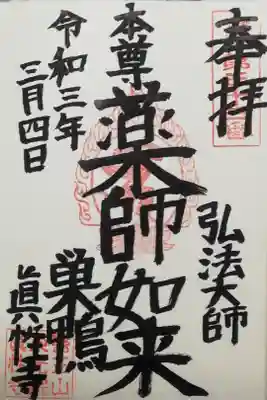 奉拝
弘法大師
本尊
薬師如来
巣鴨
眞性寺
令和三年
三月四日